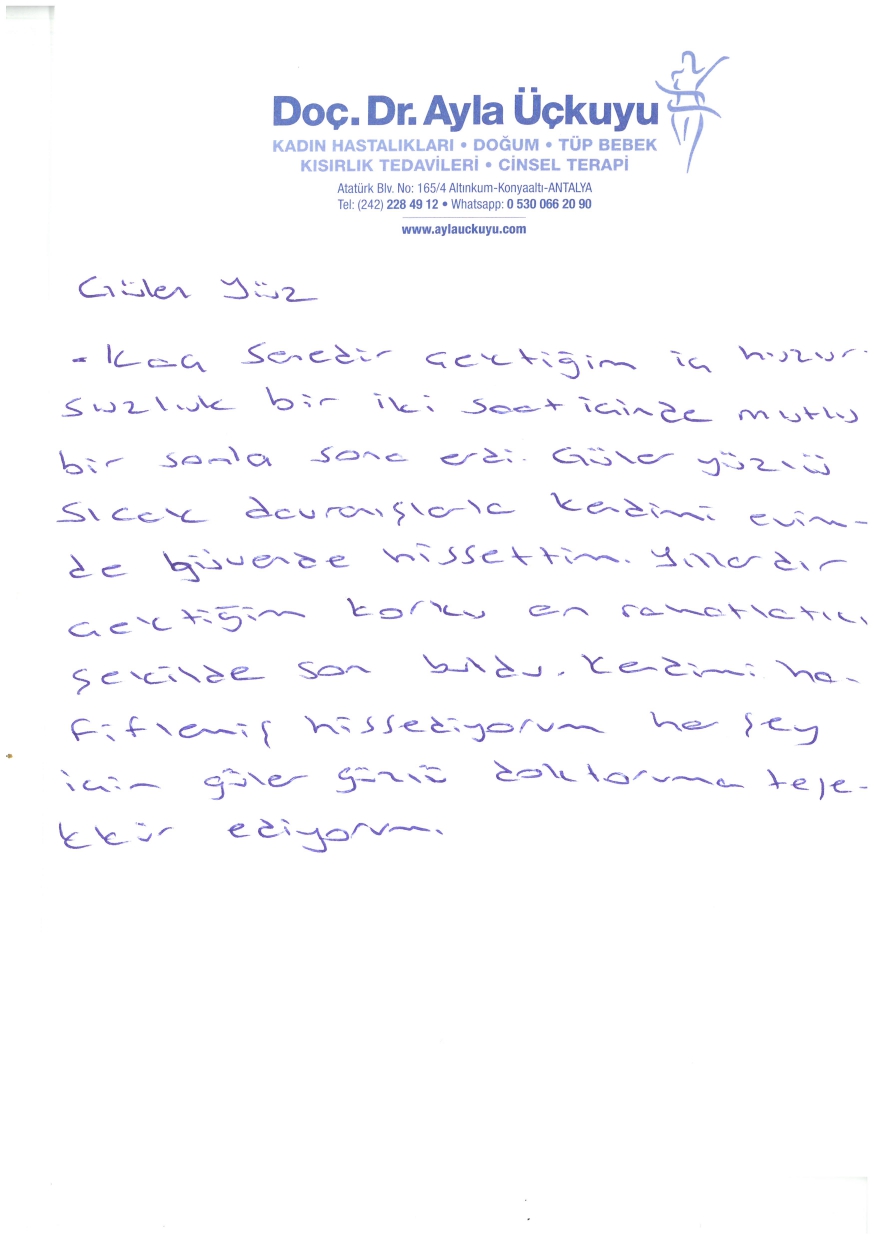 Doç. Dr. Ayla Üçkuyu
KADIN HASTALIKLARI • DOĞUM • TÜP BEBEK
KISIRLIK TEDAVİLERİ • CİNSEL TERAPİ
Atatürk Blv. No: 165/4 Altınkum-Konyaaltı-ANTALYA
Tel: (242) 228 49 12 • Whatsapp: 0 530 066 20 90
www.aylauckuyu.com
Güler Yüz
- Kaç Senedir çektiğim iç huzur-
suzluk bir iki saat içinde mutlu
bir sonla sona erdi. Güler yüzlü
Sıcak davranışlarla kendimi evim-
de güvende hissettim. Yıllardır
çektiğim korku en rahatlatıcı
şekilde son buldu. Kendimi ha-
fiflemiş hissediyorum her şey
için güler yüzlü doktoruma teşe-
kkür ediyorum.